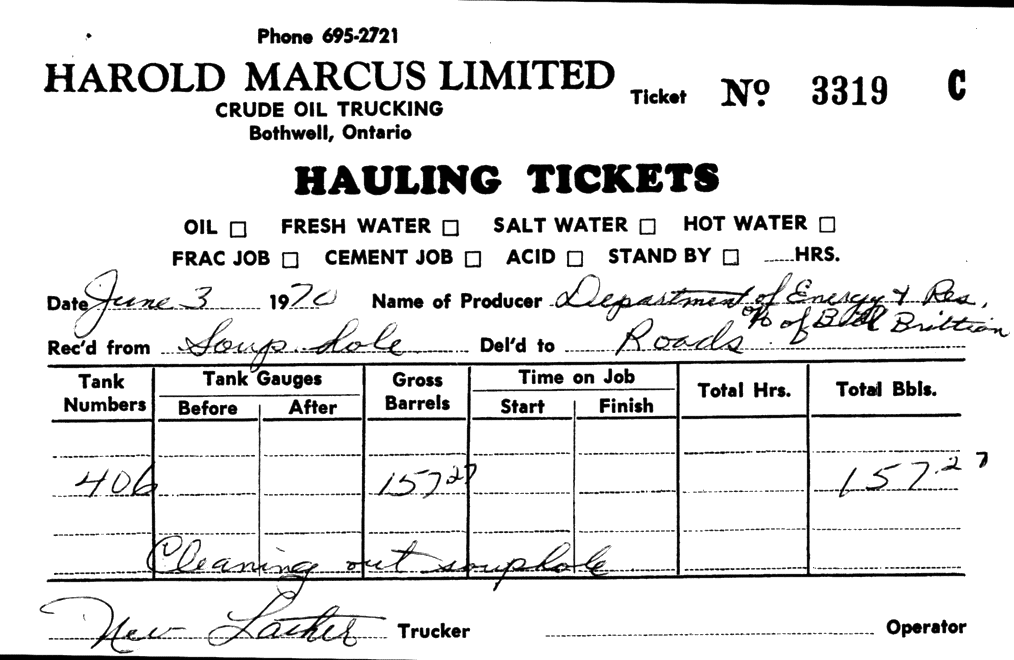 Phone 695-2721
HAROLD MARCUS LIMITED
Ticket Nº 3319 C
CRUDE OIL TRUCKING
Bothwell, Ontario
HAULING TICKETS
OIL □ FRESH WATER □ SALT WATER □ HOT WATER □
FRAC JOB □ CEMENT JOB □ ACID □ STAND BY □ ......HRS.
Date June 3 1970 Name of Producer Department of Energy & Res.
% of Bill Brittian
Rec'd from Soup hole Del'd to Roads
Tank Numbers Tank Gauges Gross Barrels Time on Job Total Hrs. Total Bbls.
Before After Start Finish
406 157 27 157.27
Cleaning out souphole
Trucker Operator